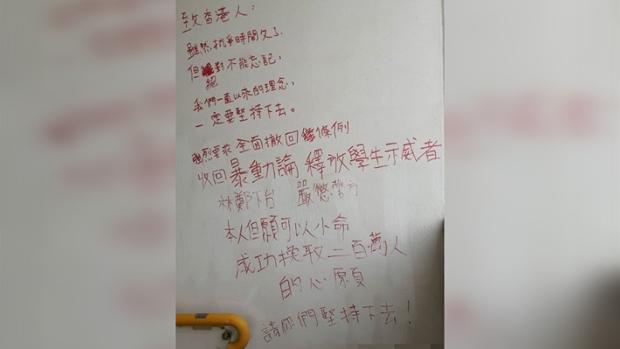 致香港人：
雖然抗爭時間久了，
但絕對不能忘記，
我們一直以來的理念，
一定要堅持下去。
強烈要求 全面撤回 條例
收回暴動論 釋放學生示威者
林鄭下台 嚴懲警方
本人但願可以小命
成功換取二百萬人
的心願
請你們堅持下去！